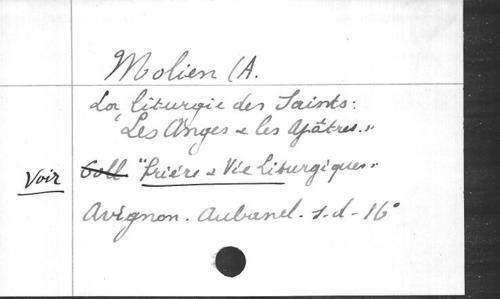 Molien (A.
La liturgie des Saints:
"Les Anges & les Apôtres."
Voir Coll "Prière & Vie Liturgiques"
Avignon. Aubanel. s.d - 16°